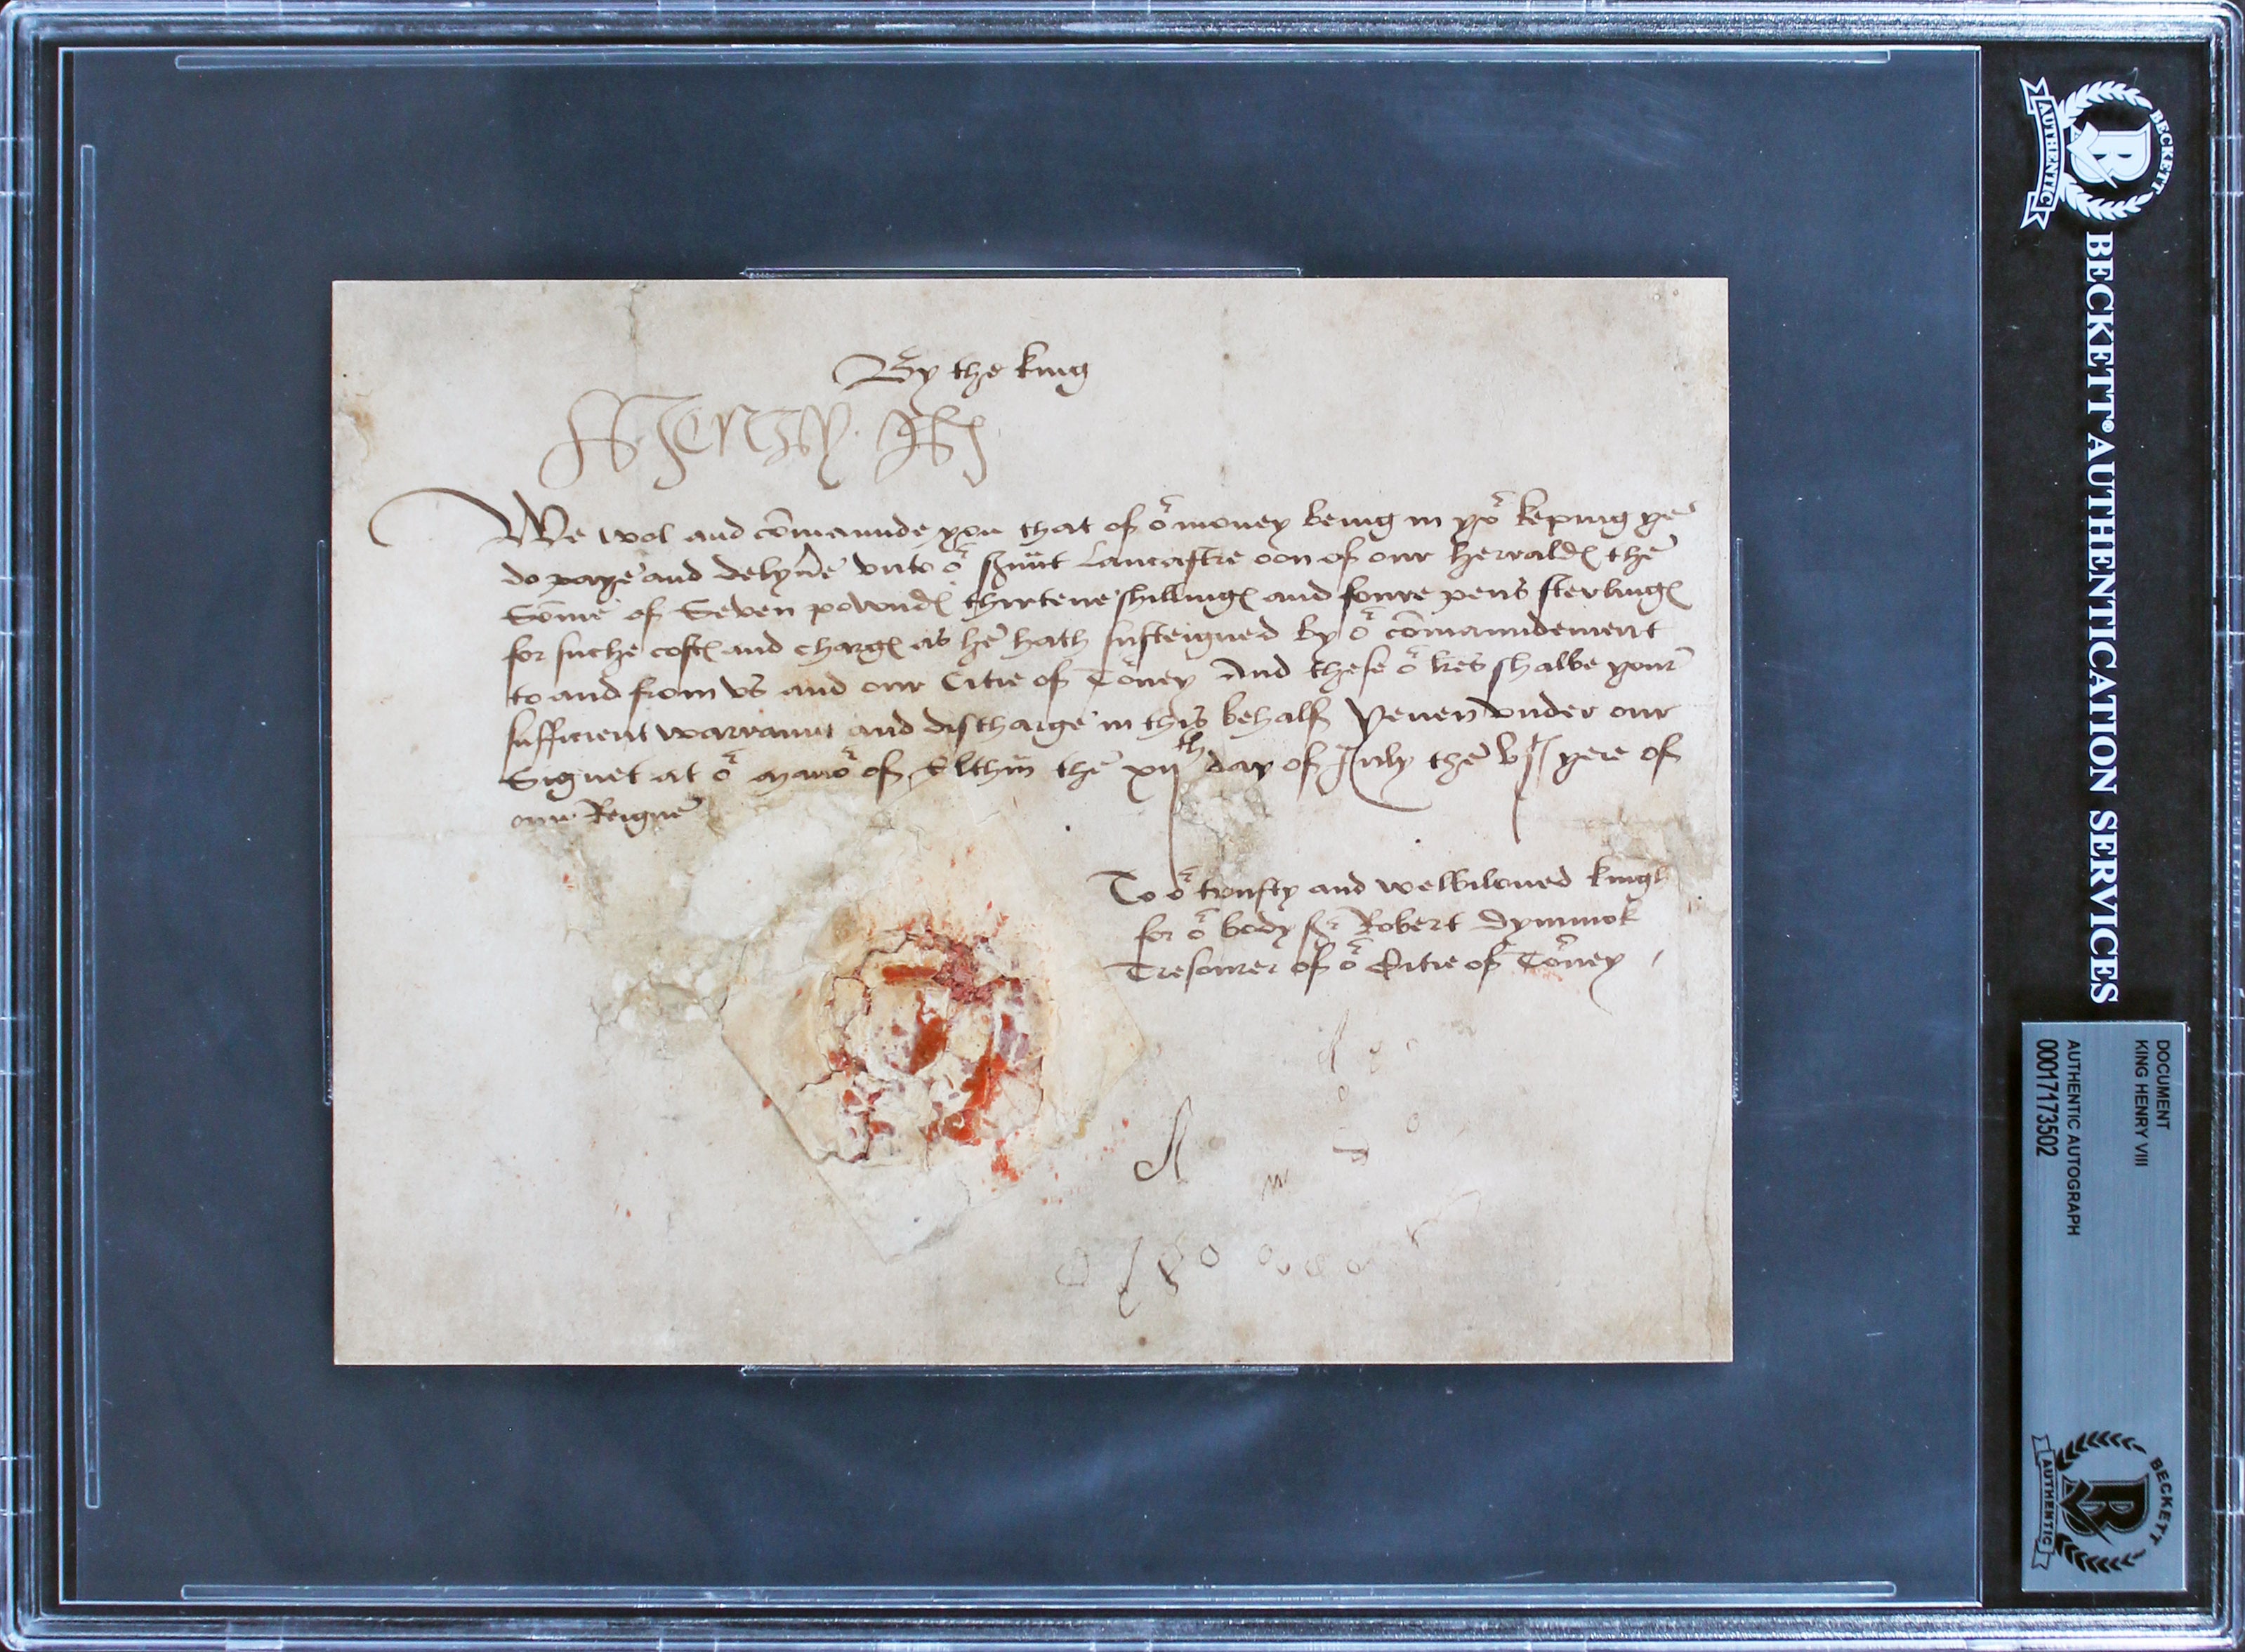 By the king
Henry R
We wol and cōmaunde you that of oʳ money being in yoʳ keping ye
do paye and delyũe vnto oʳ sũnt Lancastre oon of our herrald the
Sōme of Seven pownd thirtene shilling and foure pens sterling
for suche cost and charg as he hath susteigned by oʳ cōmaundement
to and from vs and our Citie of Toʳney And these oʳ lr̃es shalbe your
sufficient warraunt and discharge in this behalf Yeuen vnder our
Signet at oʳ manoʳ of Elthm̃ the xijᵗʰ day of July the vjᵗ yere of
our Reigne
To oʳ trusty and welbiloued knight
for oʳ body Sʳ Robert Dymmok
Tresourer of oʳ Citie of Toʳney
BECKETT
AUTHENTIC
BECKETT® AUTHENTICATION SERVICES
DOCUMENT
KING HENRY VIII
AUTHENTIC AUTOGRAPH
00017173502
BECKETT
AUTHENTIC